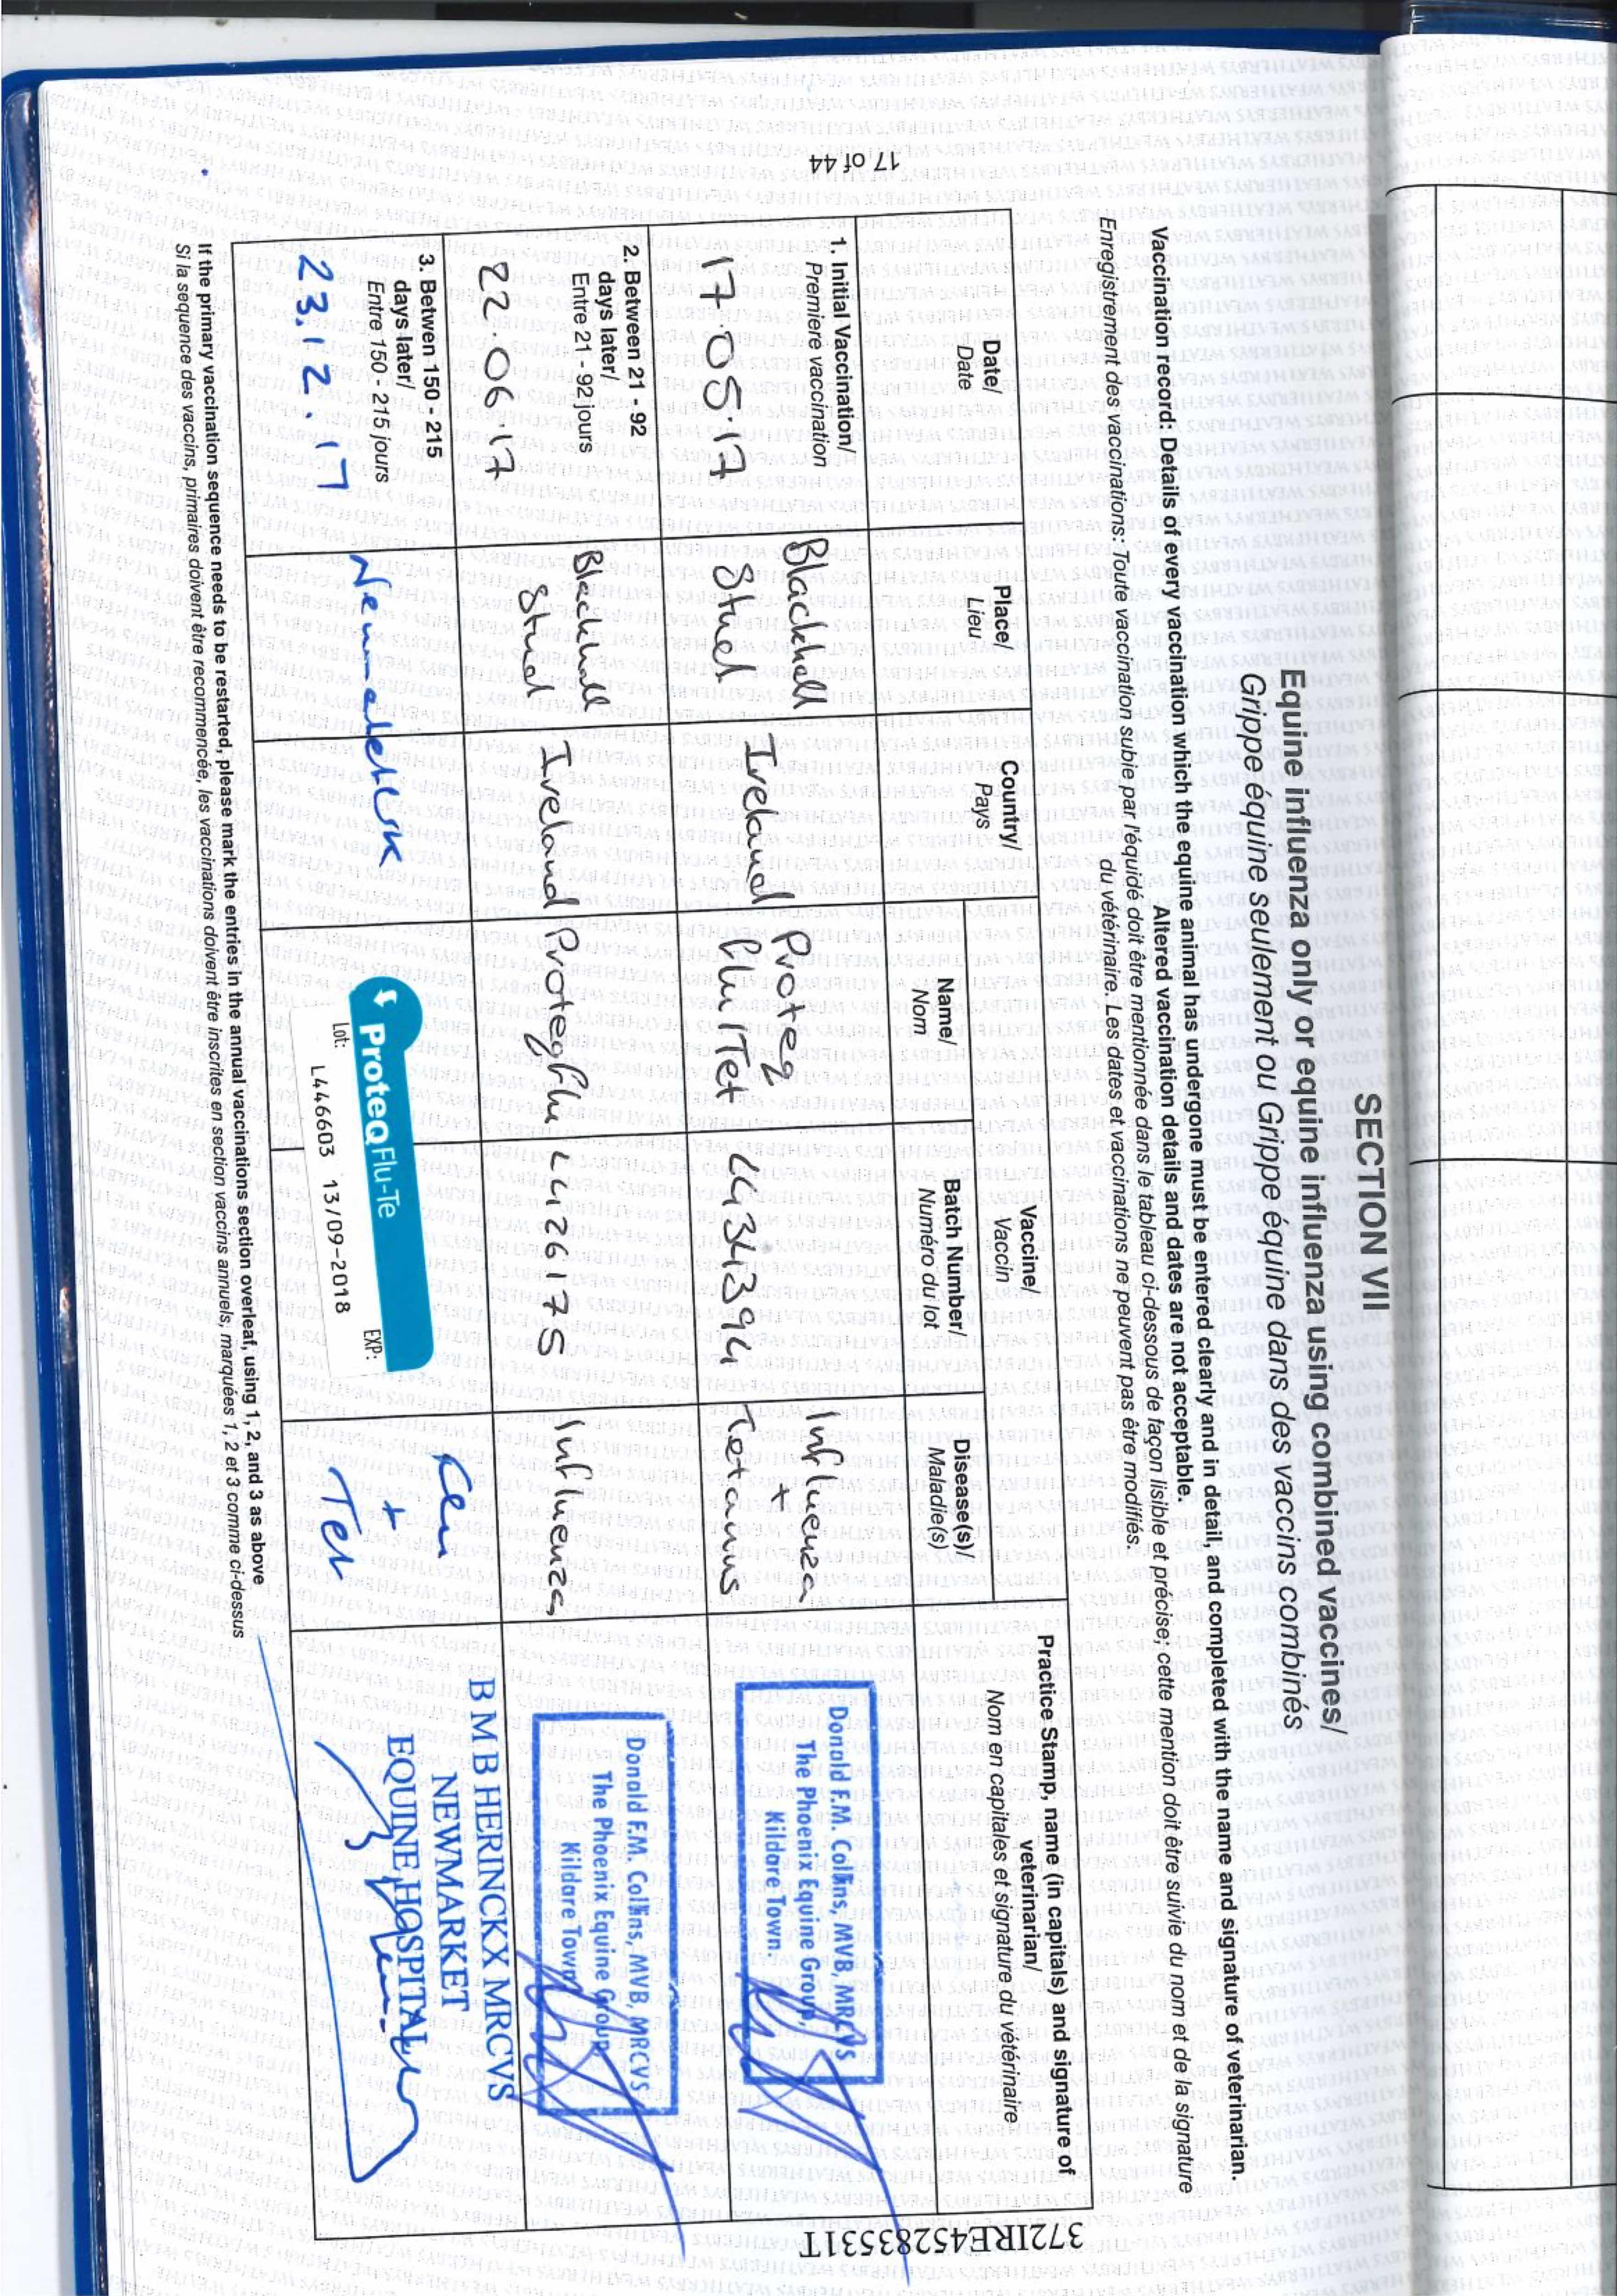 SECTION VII
Equine influenza only or equine influenza using combined vaccines/
Grippe équine seulement ou Grippe équine dans des vaccins combinés
Vaccination record: Details of every vaccination which the equine animal has undergone must be entered clearly and in detail, and completed with the name and signature of veterinarian.
Altered vaccination details and dates are not acceptable.
Enregistrement des vaccinations: Toute vaccination subie par l'équidé doit être mentionnée dans le tableau ci-dessous de façon lisible et précise; cette mention doit être suivie du nom et de la signature
du vétérinaire. Les dates et vaccinations ne peuvent pas être modifiés.
Date/
Date
Place/
Lieu
Country/
Pays
Vaccine/
Vaccin
Name/
Nom
Batch Number/
Numéro du lot
Disease(s)/
Maladie(s)
Practice Stamp, name (in capitals) and signature of
veterinarian/
Nom en capitales et signature du vétérinaire
1. Initial Vaccination/
Premiere vaccination
17.05.17
Blackhall
Stud
Ireland
Proteq
Flu/Tet
L434394
Influenza
+
Tetanus
Donald F.M. Collins, MVB, MRCVS
The Phoenix Equine Group,
Kildare Town.
2. Between 21 - 92
days later/
Entre 21 - 92 jours
22.06.17
Blackhall
Stud
Ireland
Proteqflu
L426175
Influenza
Donald F.M. Collins, MVB, MRCVS
The Phoenix Equine Group
Kildare Town
3. Betwen 150 - 215
days later/
Entre 150 - 215 jours
23.12.17
Newmarket
UK
ProteQ Flu-Te
Lot:
EXP:
L446603 13/09-2018
+
Tet
B M B HERINCKX MRCVS
NEWMARKET
EQUINE HOSPITAL
If the primary vaccination sequence needs to be restarted, please mark the entries in the annual vaccinations section overleaf, using 1, 2, and 3 as above
Si la sequence des vaccins, primaires doivent être recommencée, les vaccinations doivent être inscrites en section vaccins annuels, marquées 1, 2 et 3 comme ci-dessus
17 of 44
372IRE45283553IT